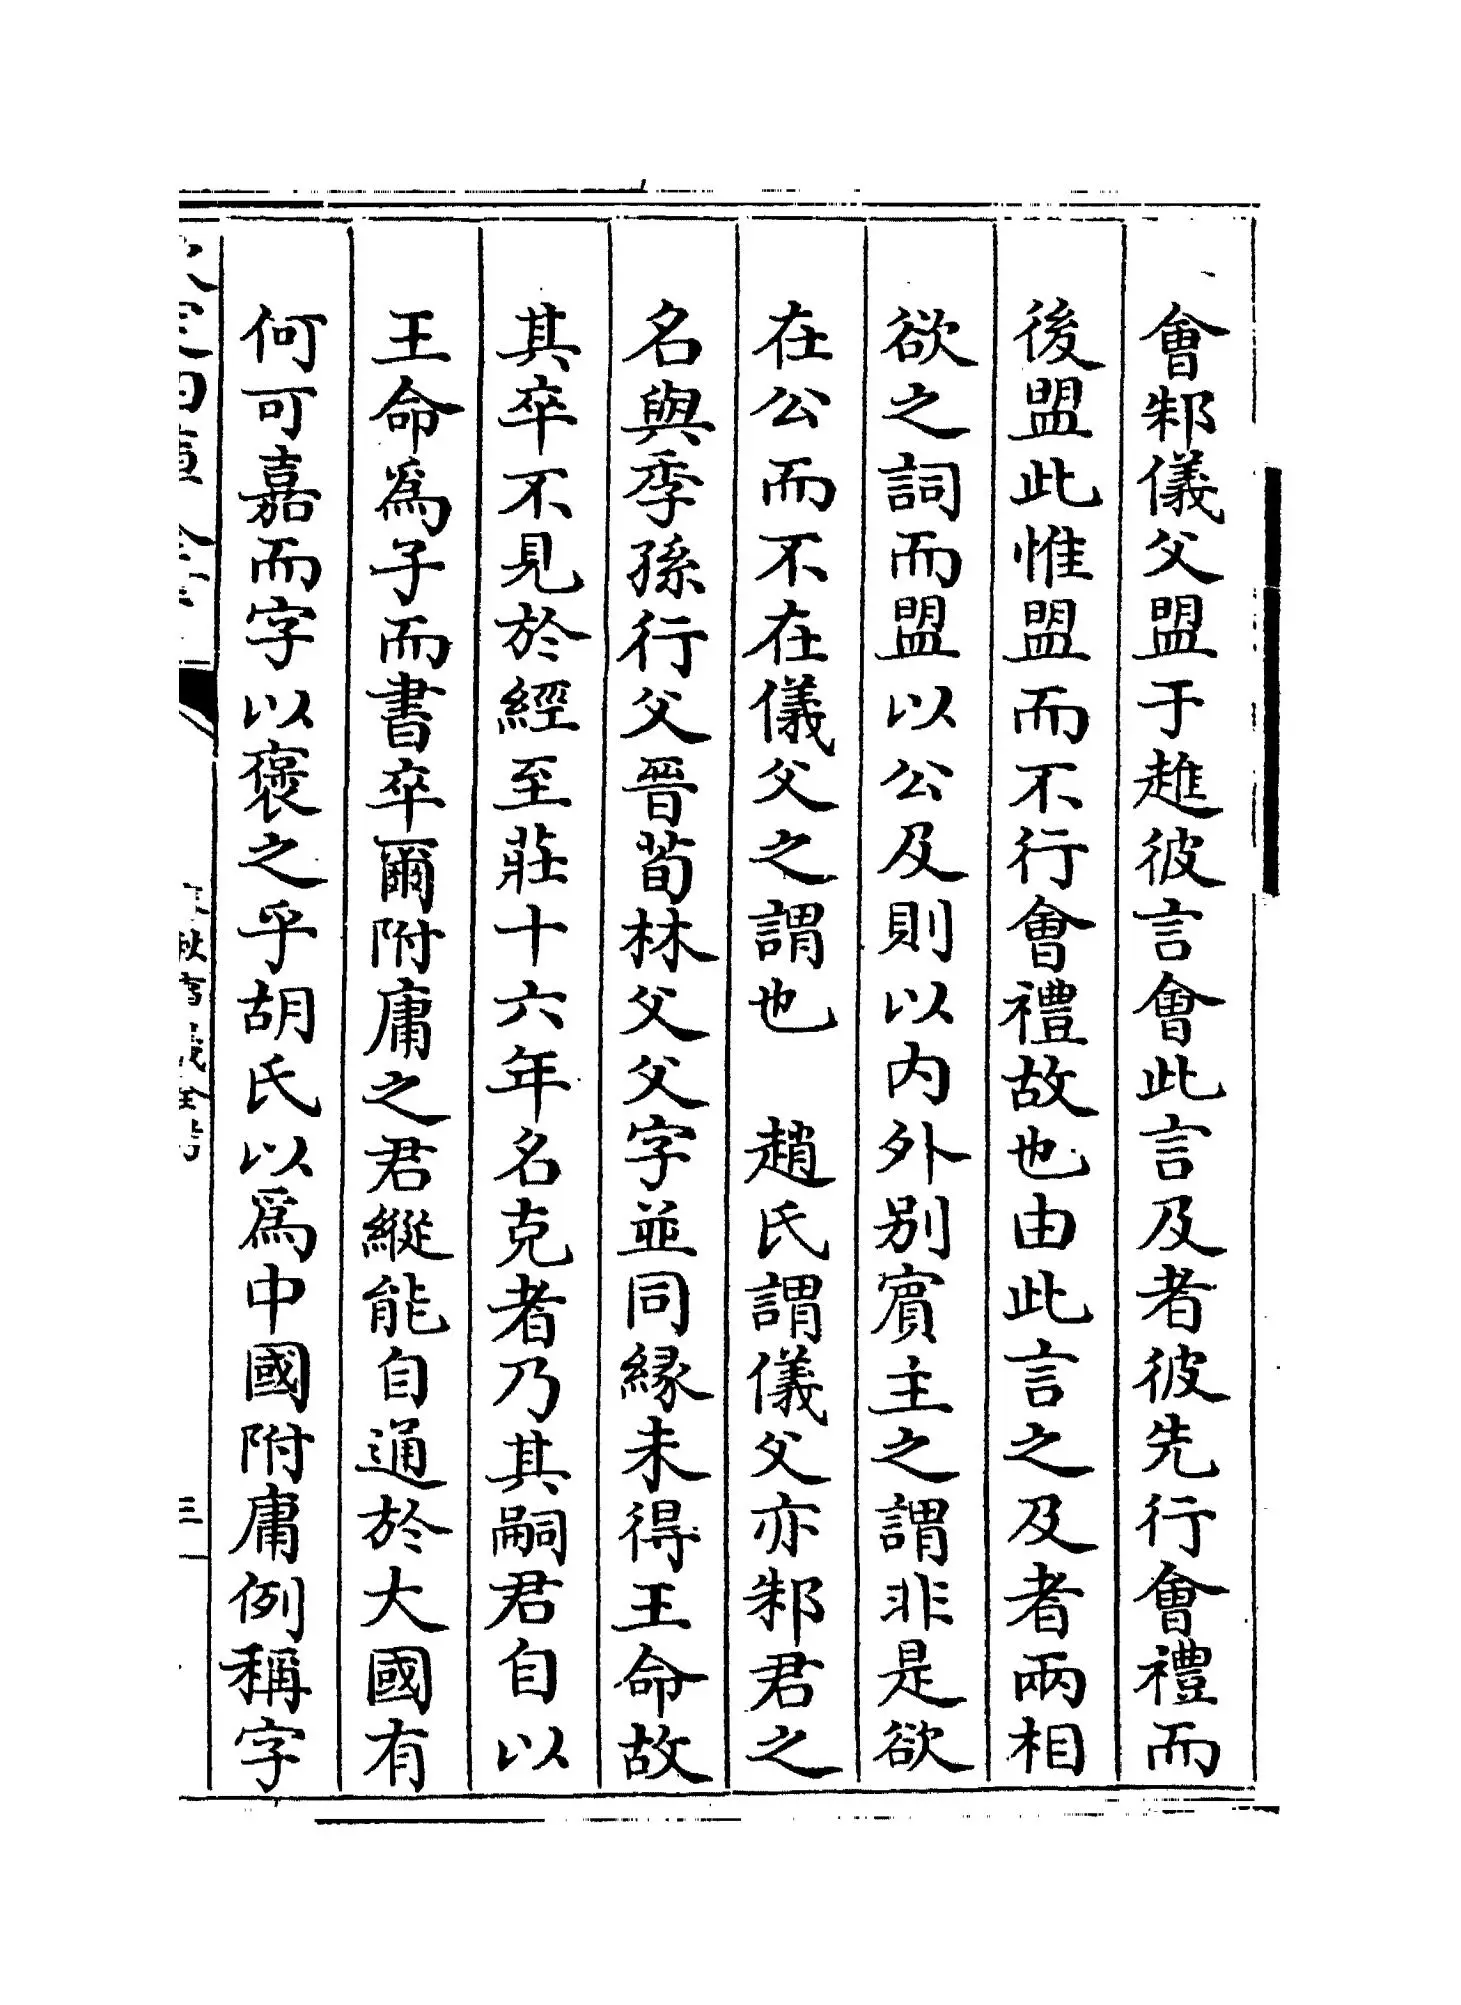 會邾儀父盟于趡彼言會此言及者彼先行會禮而
後盟此惟盟而不行會禮故也由此言之及者兩相
欲之詞而盟以公及則以内外别賔主之謂非是欲
在公而不在儀父之謂也　趙氏謂儀父亦邾君之
名與季孫行父晉荀林父父字並同縁未得王命故
其卒不見於經至莊十六年名克者乃其嗣君自以
王命爲子而書卒爾附庸之君縱能自通於大國有
何可嘉而字以褒之乎胡氏以爲中國附庸例稱字
三